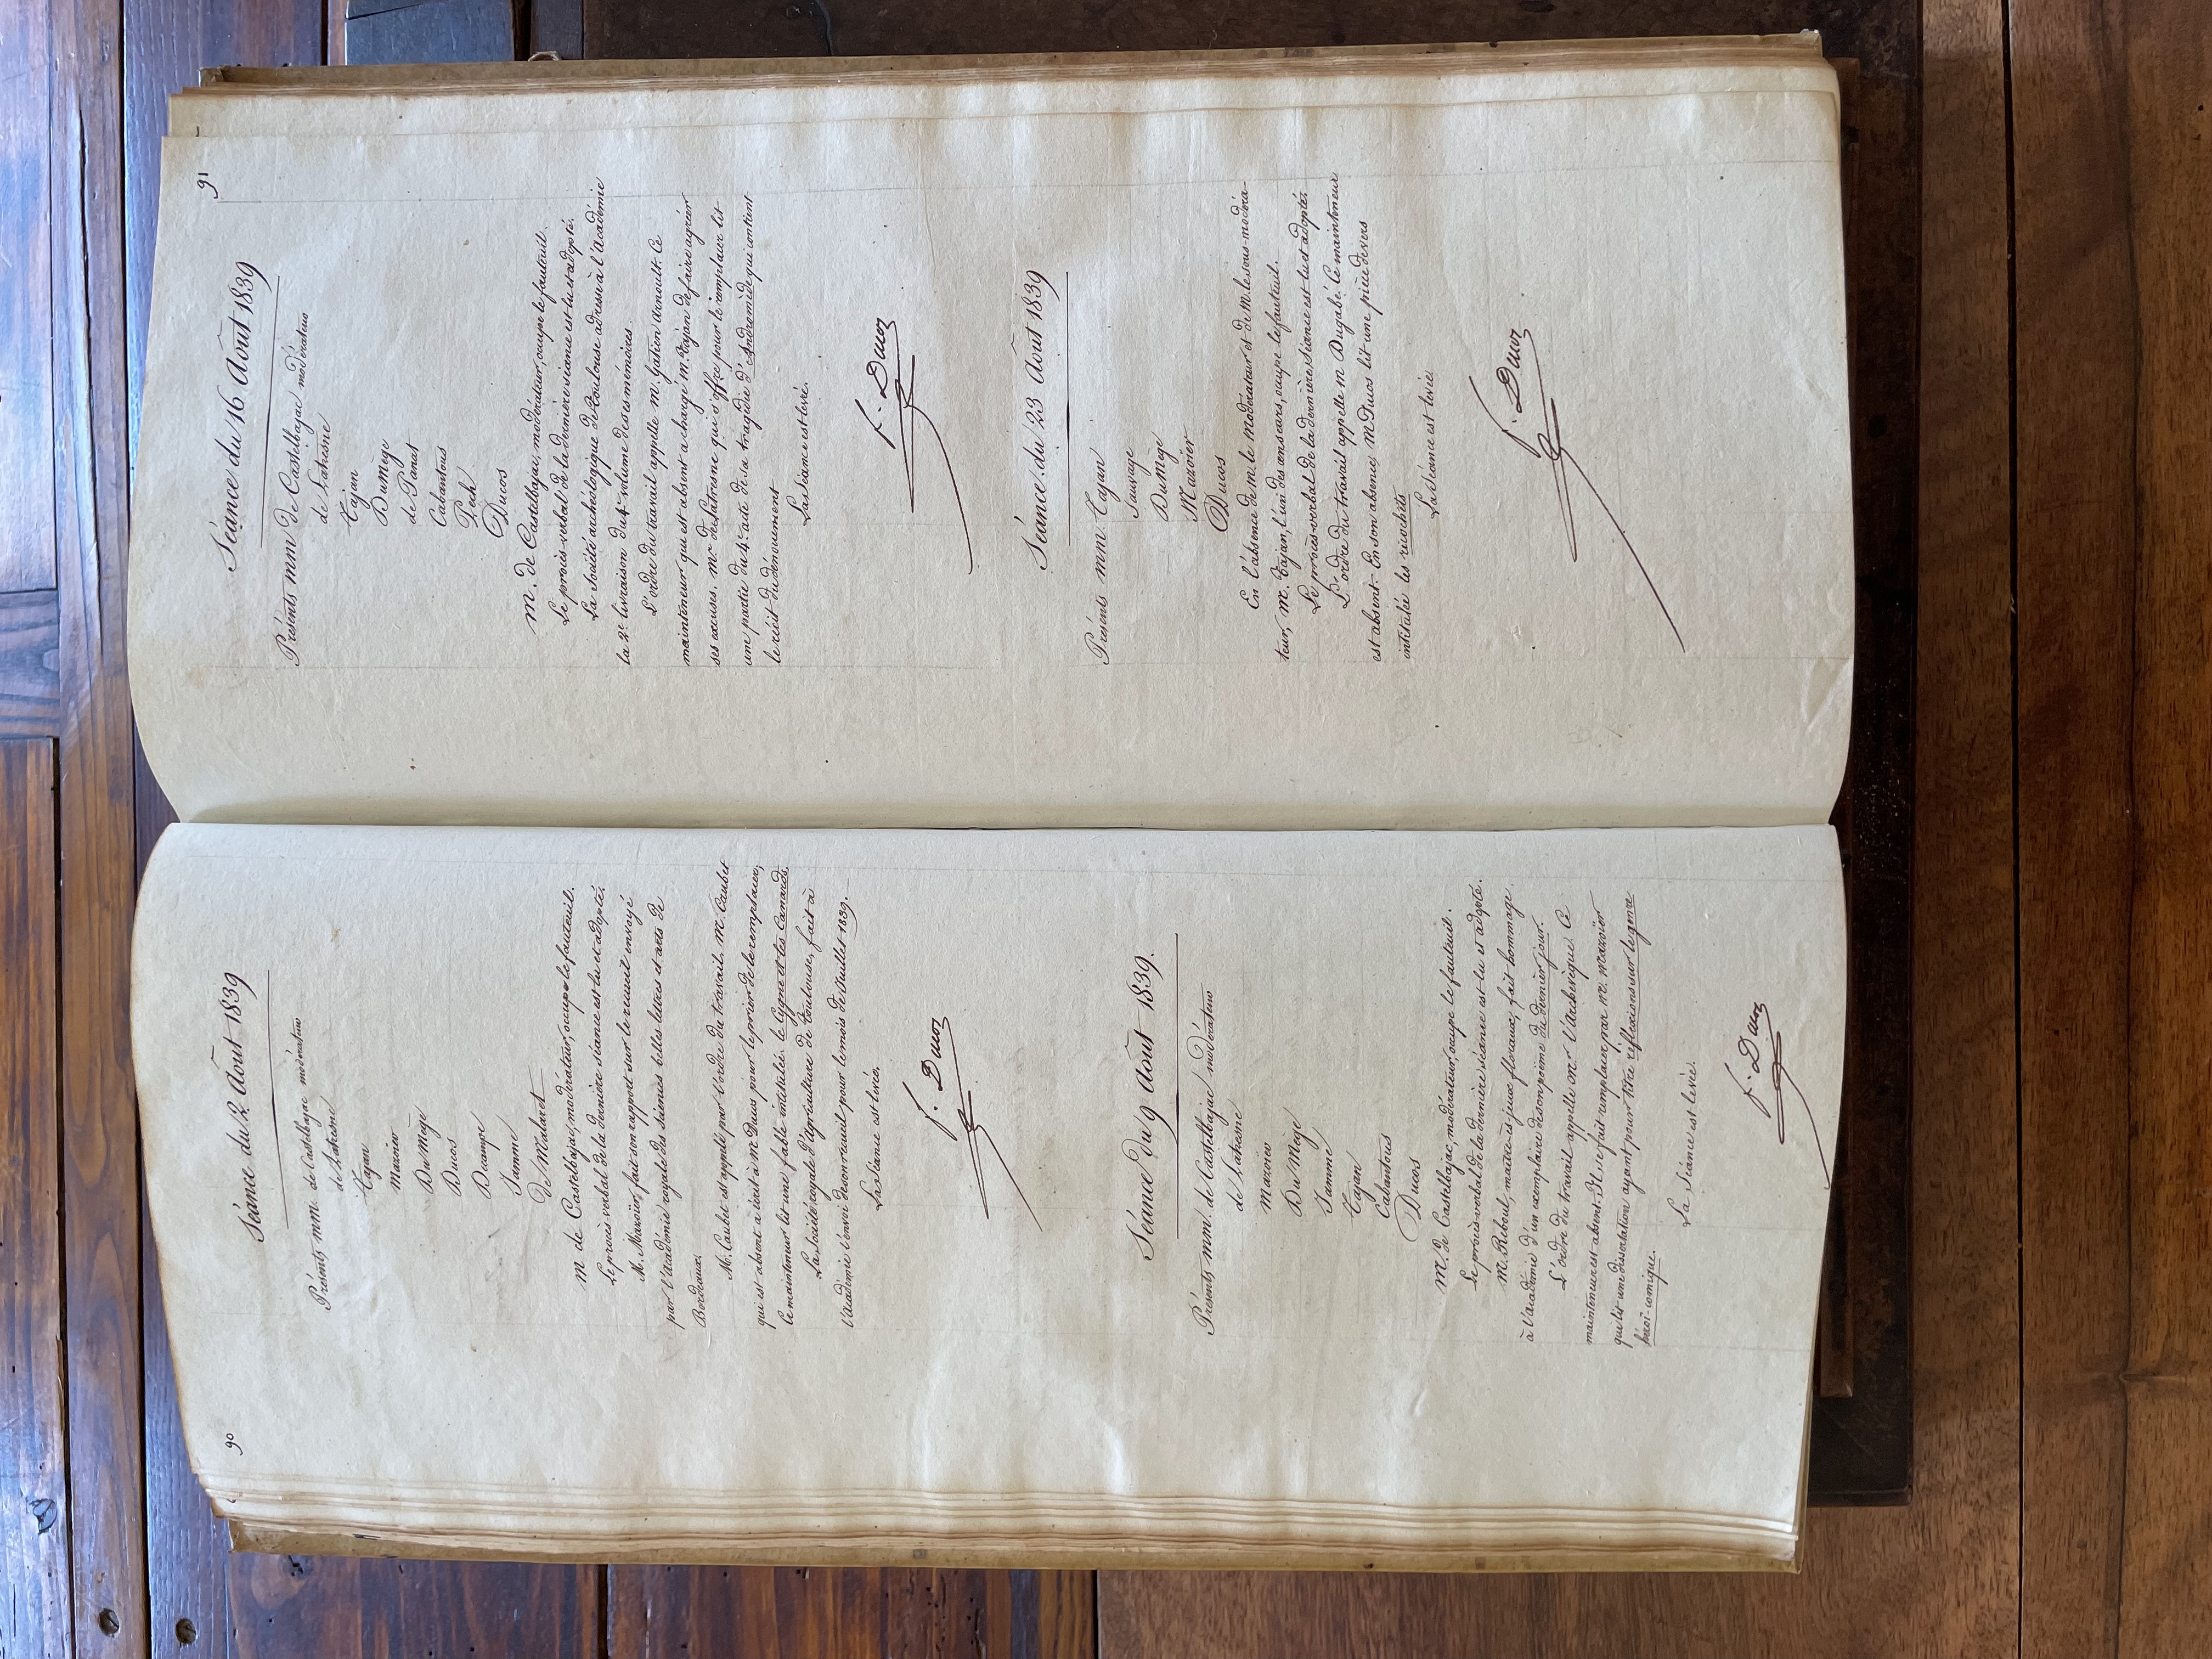 90
Séance du 2 Août 1839
Présents mm. de Castelbajac modérateur
de Lahesne
Tajan
Mazoïer
DuMège
Ducos
Decampe
Jammes
de Malaret
m de Castelbajac, modérateur, occupe le fauteuil.
Le procès-verbal de la dernière séance est lu et adopté.
M. Mazoïer, fait son rapport sur le recueil envoyé
par l'Académie royale des sciences belles lettres et arts de
Bordeaux.
M. Caubet est appelé par l'ordre du travail. M. Caubet
qui est absent a écrit à M Ducos pour le prier de le remplacer,
le mainteneur lit une fable intitulée le Cygne et les Canards.
La Société royale d'Agriculture de Toulouse, fait à
l'Académie l'envoi de son recueil pour le mois de Juillet 1839.
La Séance est levée.
F. Ducos
Séance du 9 Août 1839.
Présents mm. de Castelbajac modérateur
de Lahesne
Mazoïer
DuMège
Jammes
Tajan
Cabantous
Ducos
M. de Castelbajac, modérateur, occupe le fauteuil.
Le procès-verbal de la dernière séance est lu et adopté.
M. Reboul, maître-ès-jeux floraux, fait hommage
à l'Académie d'un exemplaire de son poème du dernier jour.
L'ordre du travail appelle mr l'Archevêque. Ce
mainteneur est absent. Il se fait remplacer par m. Mazoïer
qui lit une dissertation ayant pour titre réflexions sur le genre
héroï-comique.
La Séance est levée.
F. Ducos
91
Séance du 16 Août 1839
Présents mm de Castelbajac modérateur
de Lahesne
Tajan
DuMège
de Panat
Cabantous
Pech
Ducos
M. de Castelbajac, modérateur, occupe le fauteuil.
Le procès-verbal de la dernière séance est lu et adopté.
La Société archéologique de Toulouse adresse à l'Académie
la 2e livraison du 4e volume de ses mémoires.
L'ordre du travail appelle M. Gatien Arnoult. Ce
mainteneur qui est absent a chargé M. Tajan de faire agréer
ses excuses. Mr de Lahesne qui s'offre pour le remplacer lit
une partie du 4e acte de sa tragédie d'Andromède qui contient
le récit du dénouement
La Séance est levée.
F. Ducos
Séance du 23 Août 1839
Présents mm. Tajan
Sauvage
DuMège
Mazoïer
Ducos
En l'absence de M. le Modérateur et de M. le sous-modéra-
teur, M. Tajan, l'un des censeurs, occupe le fauteuil.
Le procès-verbal de la dernière séance est lu et adopté
L'ordre du travail appelle m Dugabé. Ce mainteneur
est absent. En son absence, M Ducos lit une pièce de vers
intitulée les ricochets
La Séance est levée.
F. Ducos